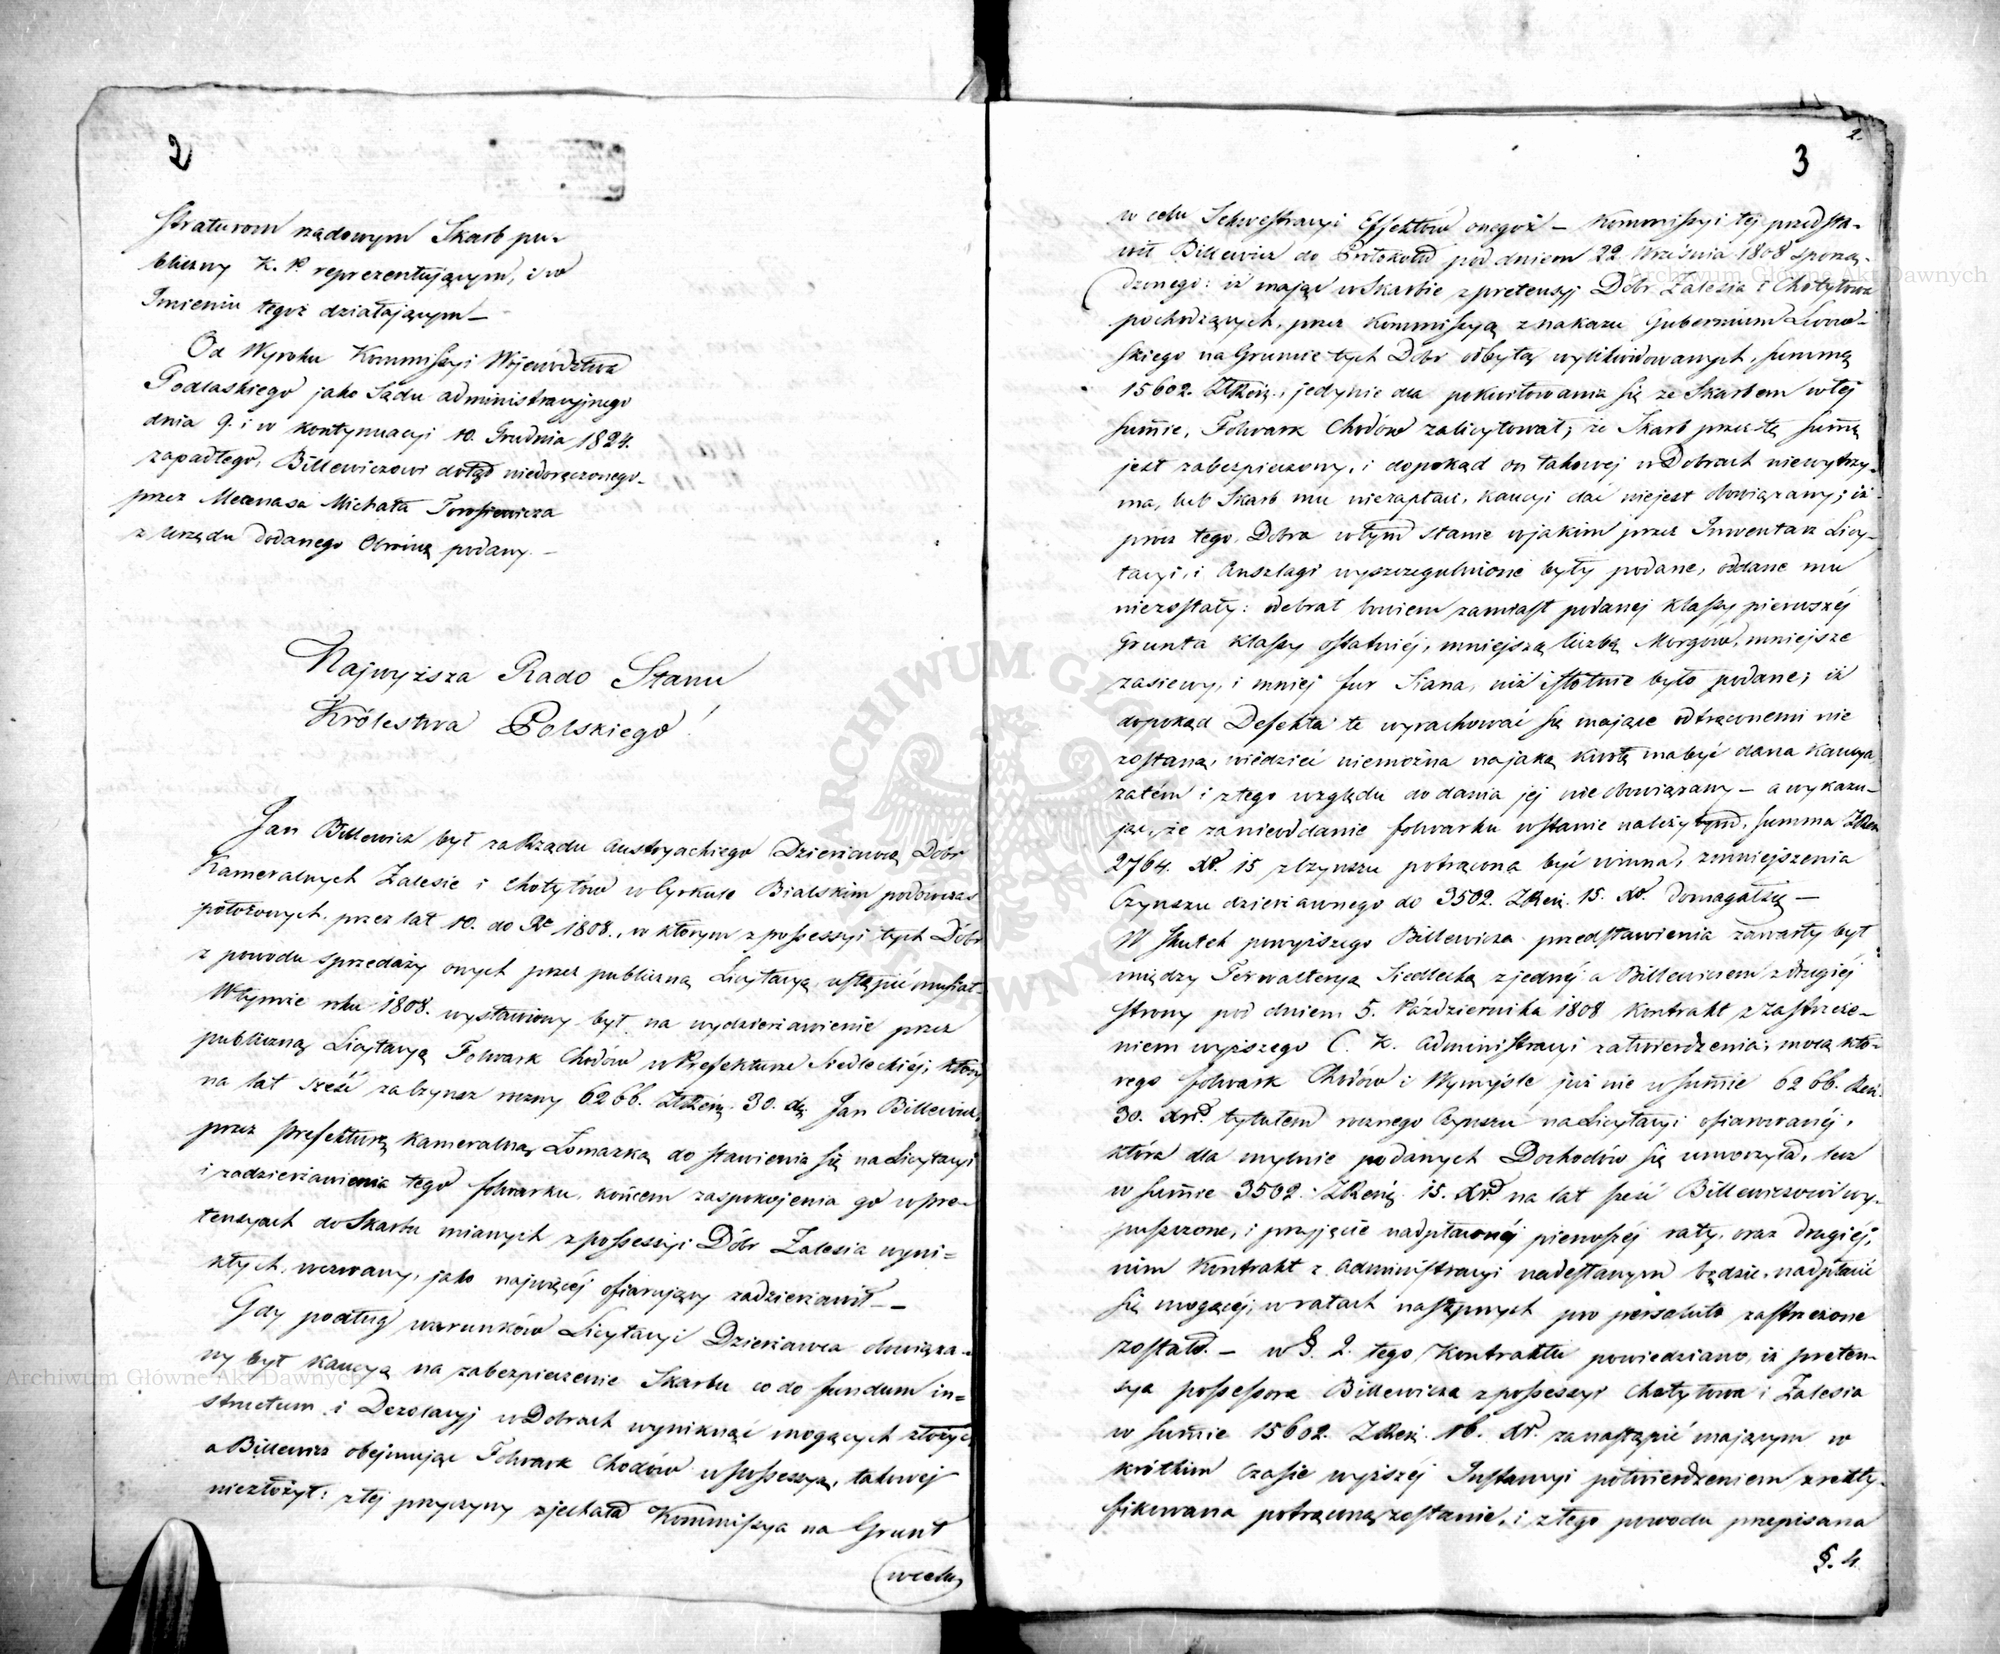 2
straturom rządowym Skarb pu-
bliczny K. P. reprezentującym, i w
Imieniu tegoż działającym —
Od Wyroku Kommissyi Województwa
Podlaskiego jako Sądu administracyjnego
dnia 9. i w kontynuacyi 10. Grudnia 1824.
zapadłego, Billewiczowi dotąd niedoręczonego.
przez Mecenasa Michała
z Urzędu dodanego Obroncę podany. —
Najwyższa Rado Stanu
Królestwa Polskiego!
Jan Billewicz był za Rządu Austryackiego Dzierżawcą Dóbr
Kameralnych Zalesie i Chotyłów w Cyrkule Bialskim podówczas
położonych, przez lat 10. do Rr 1808., w którym z possessyi tych Dóbr
z powodu sprzedaży onych przez publiczną Licytacyą, ustąpić musiał.
W tymże roku 1808. wystawiony był na wydzierżawienie przez
publiczną Licytacyą Folwark Chodów w Prefekturze Siedleckiéj, który
na lat sześć za Czynsz roczny 6266. ZłReń. 30. Jan Billewicz,
przez Prefekturę Kameralną Łomazką do stawienia się na Licytacyi
i zadzierżawienia tego folwarku, końcem zaspokojenia go w pre-
tensyach do Skarbu mianych z possessyi Dóbr Zalesia wyni-
kłych, wezwany, jako najwięcéj ofiarujący zadzierżawił —
Gdy podług warunków Licytacyi Dzierżawca obowiąza-
ny był kaucyą na zabezpieczenie Skarbu co do fundum in-
structum i Dezolacyj w Dobrach wyniknąć mogących złożyć,
a Billewicz obejmując Folwark Chodów w possessyą, takowej
niezłożył: z téj przyczyny zjechała Kommissya na Grunt
w celu
2.
3
w celu Sekwestracyi Effektów onegoż — Kommissyi téj przedsta-
wił Billewicz do Protokołu pod dniem 22 Września 1808 sporzą-
dzonego: iż mając w Skarbie z pretensyj Dóbr Zalesia i Chotyłowa
pochodzących, przez Kommissyą z nakazu Gubernium Lwow-
skiego na Gruncie tych Dóbr odbytą wylikwidowanych, summę
15602. ZłReń., jedynie dla pokwitowania się ze Skarbem w tej
summie, Folwark Chodów zalicytował; że Skarb przez tę summę
jest zabezpieczony, i dopokąd on takowej w Dobrach niewytrzy-
ma, lub Skarb mu niezapłaci, kaucyi dać niejest obowiązany; iż
prócz tego, Dobra w tym stanie w jakim przez Inwentarz Licy-
tacyi, i Anszlagi wyszczegulnione były podane, oddane mu
niezostały: odebrał bowiem zamiast podanej klassy pierwszéj
Grunta klassy ostatniéj, mniejszą liczbę Morgów, mniejsze
zasiewy, i mniej fur Siana, niż istotnie było podane; iż
dopokąd Defekta te wyrachować się mające odtrąconemi nie
zostaną, wiedzieć niemożna na jaką kwotę ma być dana kaucya
zatém i z tego względu do dania jej nie obowiązany — a wykazu-
jąc, że za nieoddanie folwarku w stanie należytym, summa ZReń
2764. Xr. 15 z Czynszu potrącona być winna, zmniejszenia
Czynszu dzierżawnego do 3502. ZReń. 15. Xr. domagał się —
W skutek powyższego Billewicza przedstawienia zawarty był
między Ferwalterya Siedlecką z jednéj a Billewiczem z drugiéj
strony pod dniem 5. Października 1808 Kontrakt z zastrzeże-
niem wyższego C. K. Administracyi zatwierdzenia; mocą któ-
rego folwark Chodów i Wymysle już nie w summie 6266. Reń.
30. Xrr. tytułem rocznego Czynszu na Licytacyi ofiarowanéj,
która dla mylnie podanych Dochodów się utworzyła, lecz
w summie 3502. ZReń. 15. Xr. na lat sześć Billewiczowi wy-
puszczone, i przyjęcie nadpłaconéj pierwszéj raty, oraz drugiéj,
nim Kontrakt z Administracyi nadesłanym będzie, nadpłacić
się mogącéj, w ratach następnych pro persoluto zastrzeżone
zostało. — w §. 2. tego Kontraktu powiedziano, iż preten-
sya possessora Billewicza z possessyi Chotyłowa i Zalesia
w summie 15602. ZReń. 16. Xr. za nastąpić mającym w
krótkim czasie wyższéj Instancyi potwierdzeniem zrekty-
fikowana potrąconą zostanie, i z tego powodu przepisana
§. 4.
ARCHIWUM GŁÓWNE AKT DAWNYCH
Archiwum Główne Akt Dawnych
Archiwum Główne Akt Dawnych